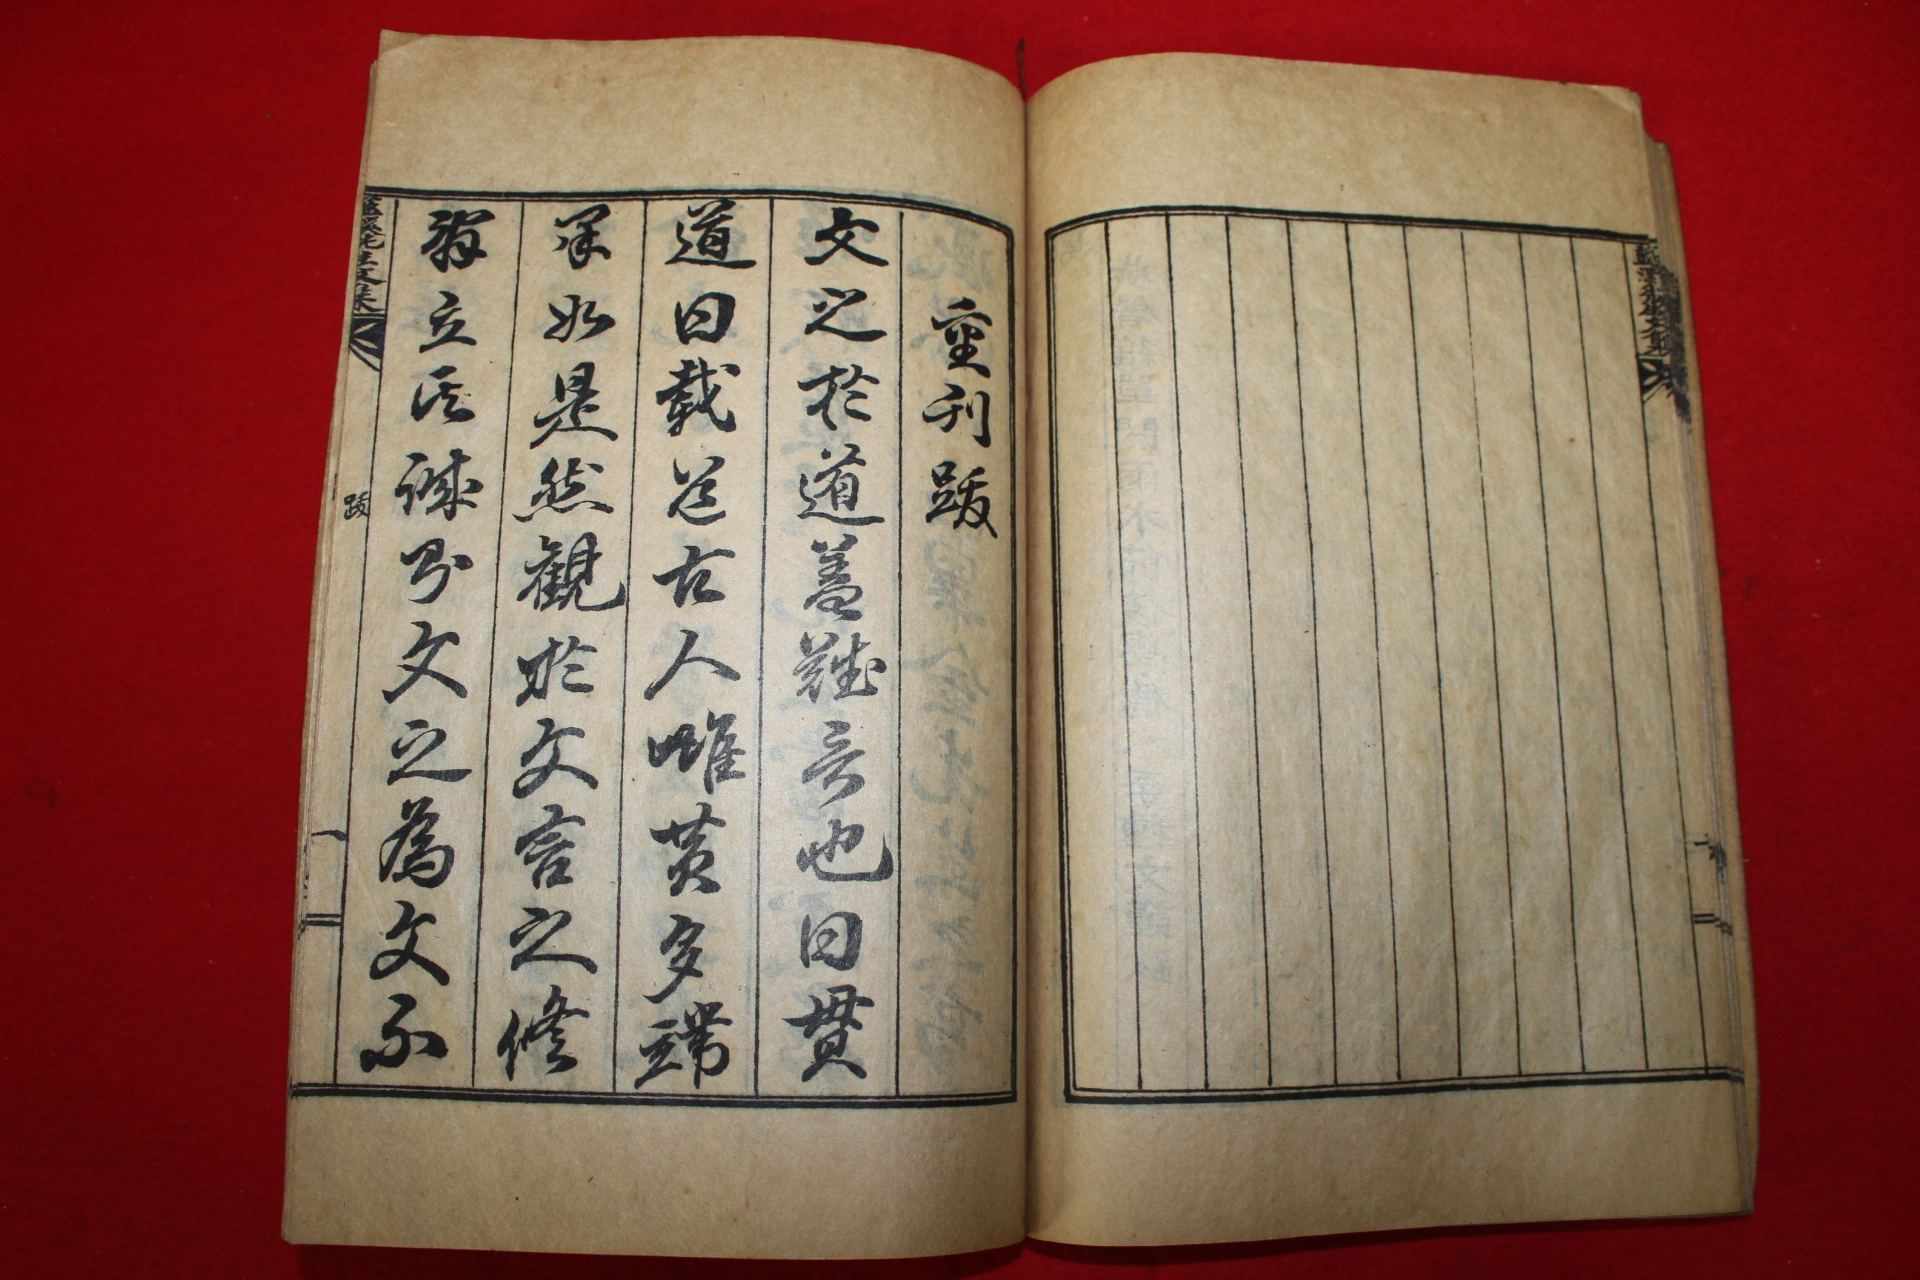 重刊跋
文之於道盖難言也曰貫
道曰載道古人唯其多端
果如是然觀於文言之修
辭立其誠則文之為文不
跋
一